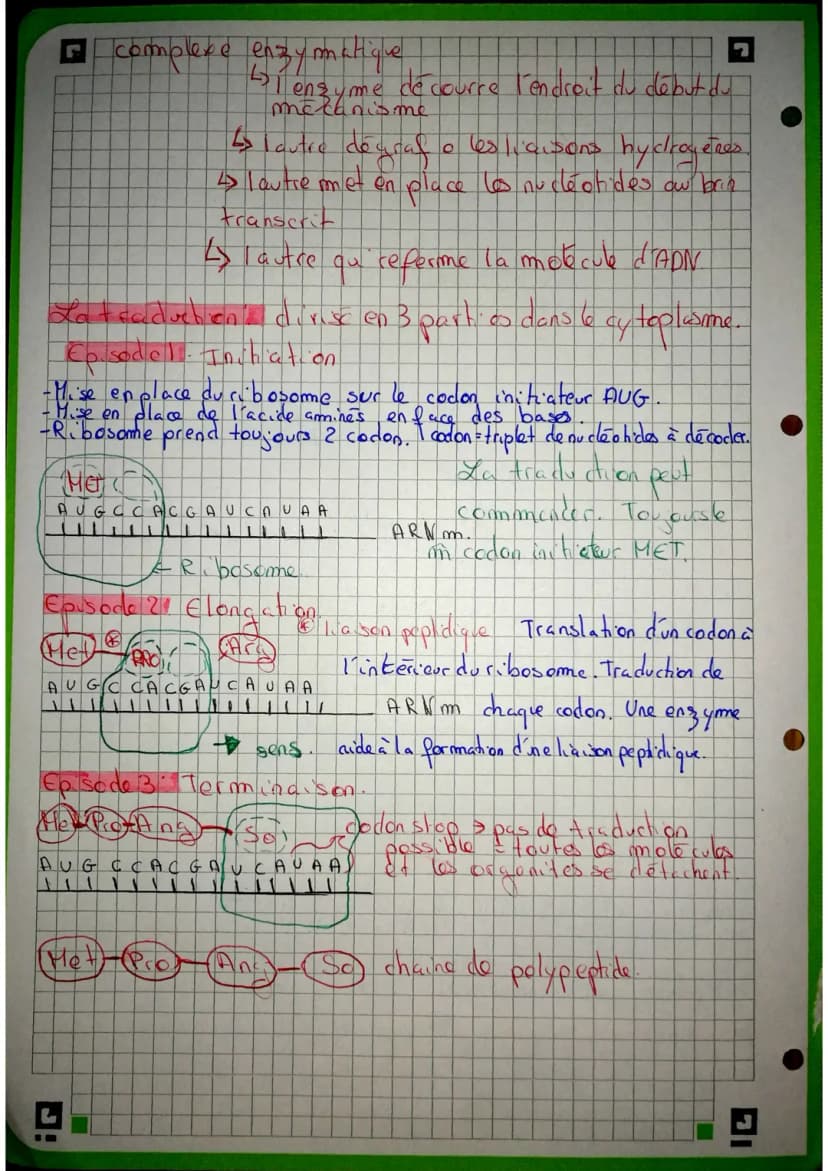 complexe enzymatique
↳ l'enzyme découvre l'endroit du début du
méchnisme
↳ l'autre dégraf o les liaisons hydrogènes.
↳ l'autre met en place les nucléotides au brin
transcrit
↳ l'autre qui referme la molécule d'ADN
La traduction: divisé en 3 parties dans le cytoplasme.
Episode 1: Initiation
-Mise en place du ribosome sur le codon initiateur AUG.
-Mise en place de l'acide aminés en face des bases.
-Ribosome prend toujours 2 codon. 1 codon=triplet de nucléotides à décoder.
Met
La traduction peut
A U G C C A C G A U C A U A A
commencer. Toujours le
ARNm.
m̂ codon initiateur MET.
← Ribosome
Episode 2: Elongation.
* liaison peptidique
Translation d'un codon à
Met * PRO Arg
l'intérieur du ribosome. Traduction de
A U G C C A C G A U C A U A A
ARNm
chaque codon. Une enzyme
→ sens.
aide à la formation d'une liaison peptidique.
Episode 3: Terminaison.
Met Pro Ang So
codon stop → pas de traduction
possible = toutes les molécules
A U G C C A C G A U C A U A A
et les organites se détachent.
Met - Pro - Ang - So chaine de polypeptide.